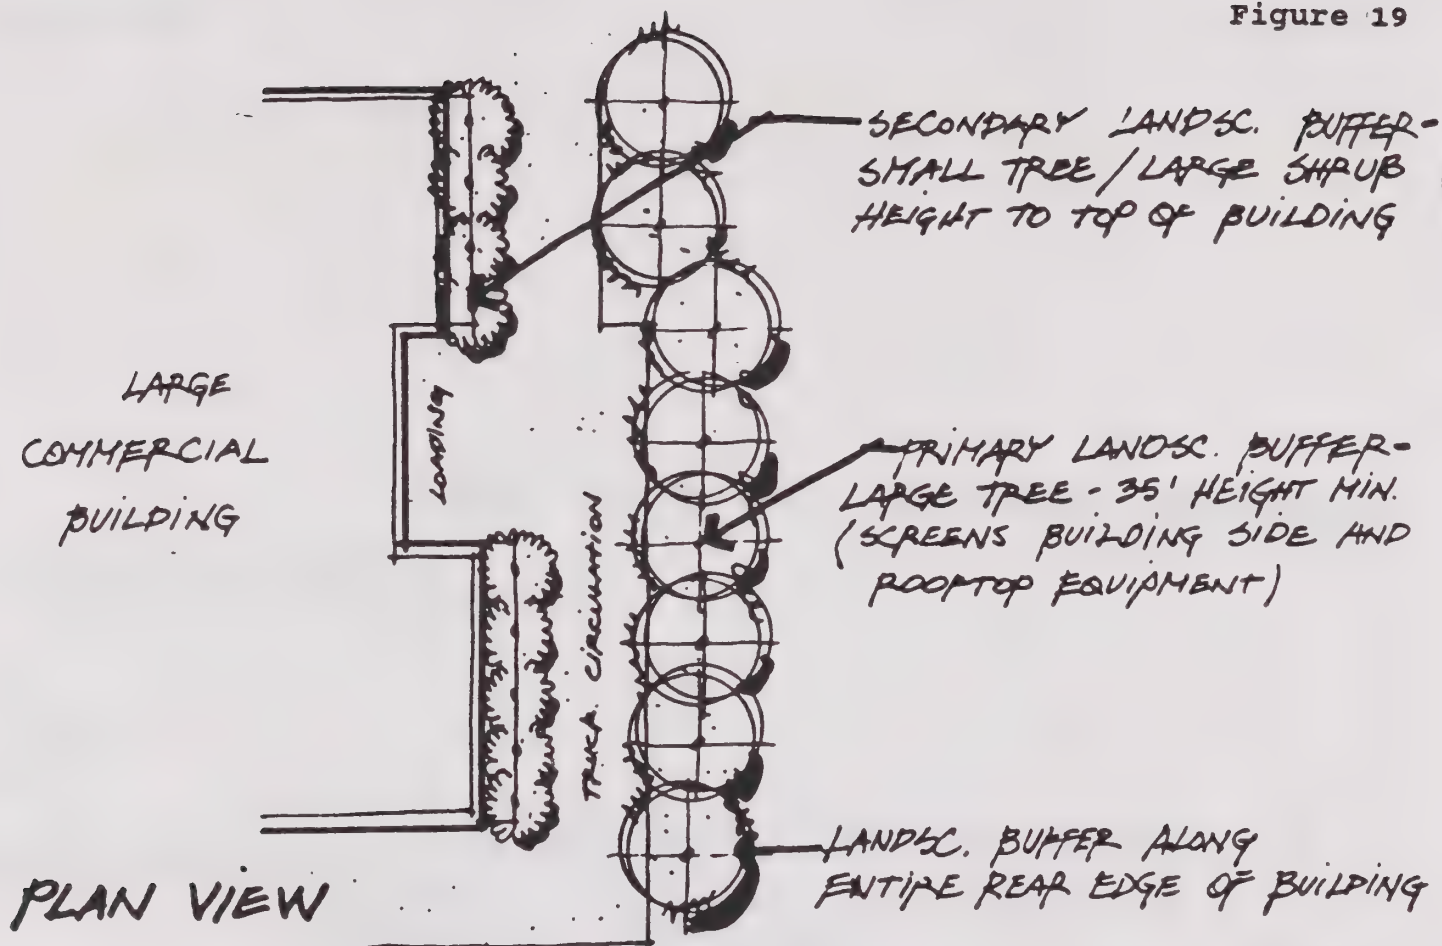 Figure 19
SECONDARY LANDSC. BUFFER-
SMALL TREE / LARGE SHRUB
HEIGHT TO TOP OF BUILDING
LARGE
COMMERCIAL
BUILDING
LOADING
TRUCK CIRCULATION
PRIMARY LANDSC. BUFFER-
LARGE TREE - 35' HEIGHT MIN.
(SCREENS BUILDING SIDE AND
ROOFTOP EQUIPMENT)
LANDSC. BUFFER ALONG
ENTIRE REAR EDGE OF BUILDING
PLAN VIEW